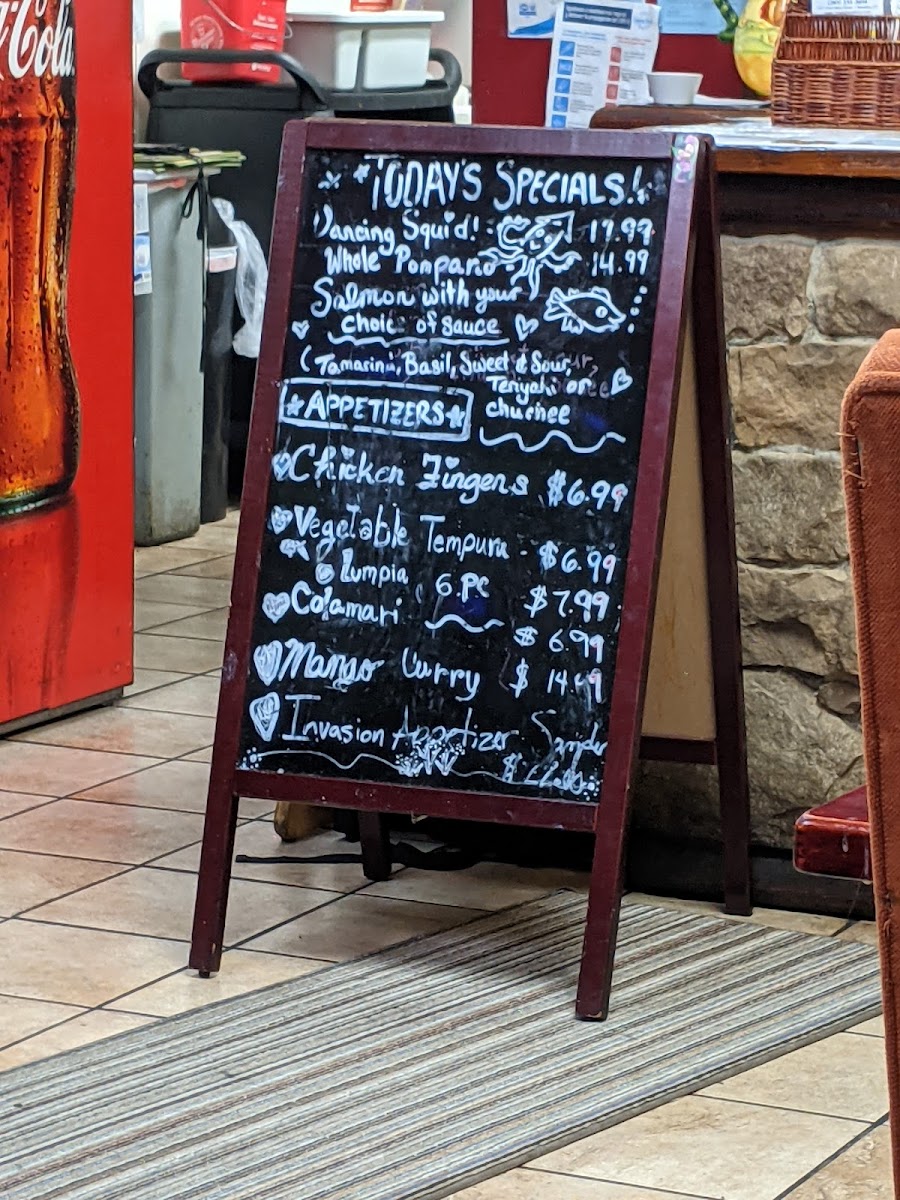 Coca-Cola
TODAY'S SPECIALS!
Dancing Squid! 17.99
Whole Pompano 14.99
Salmon with your
choice of sauce
(Tamarind, Basil, Sweet & Sour,
Teriyaki or
chuchee
APPETIZERS
Chicken Fingers $6.99
Vegetable Tempura $6.99
Lumpia 6.pc $7.99
Calamari $6.99
Mango Curry $14.49
Invasion Appetizer Sampler